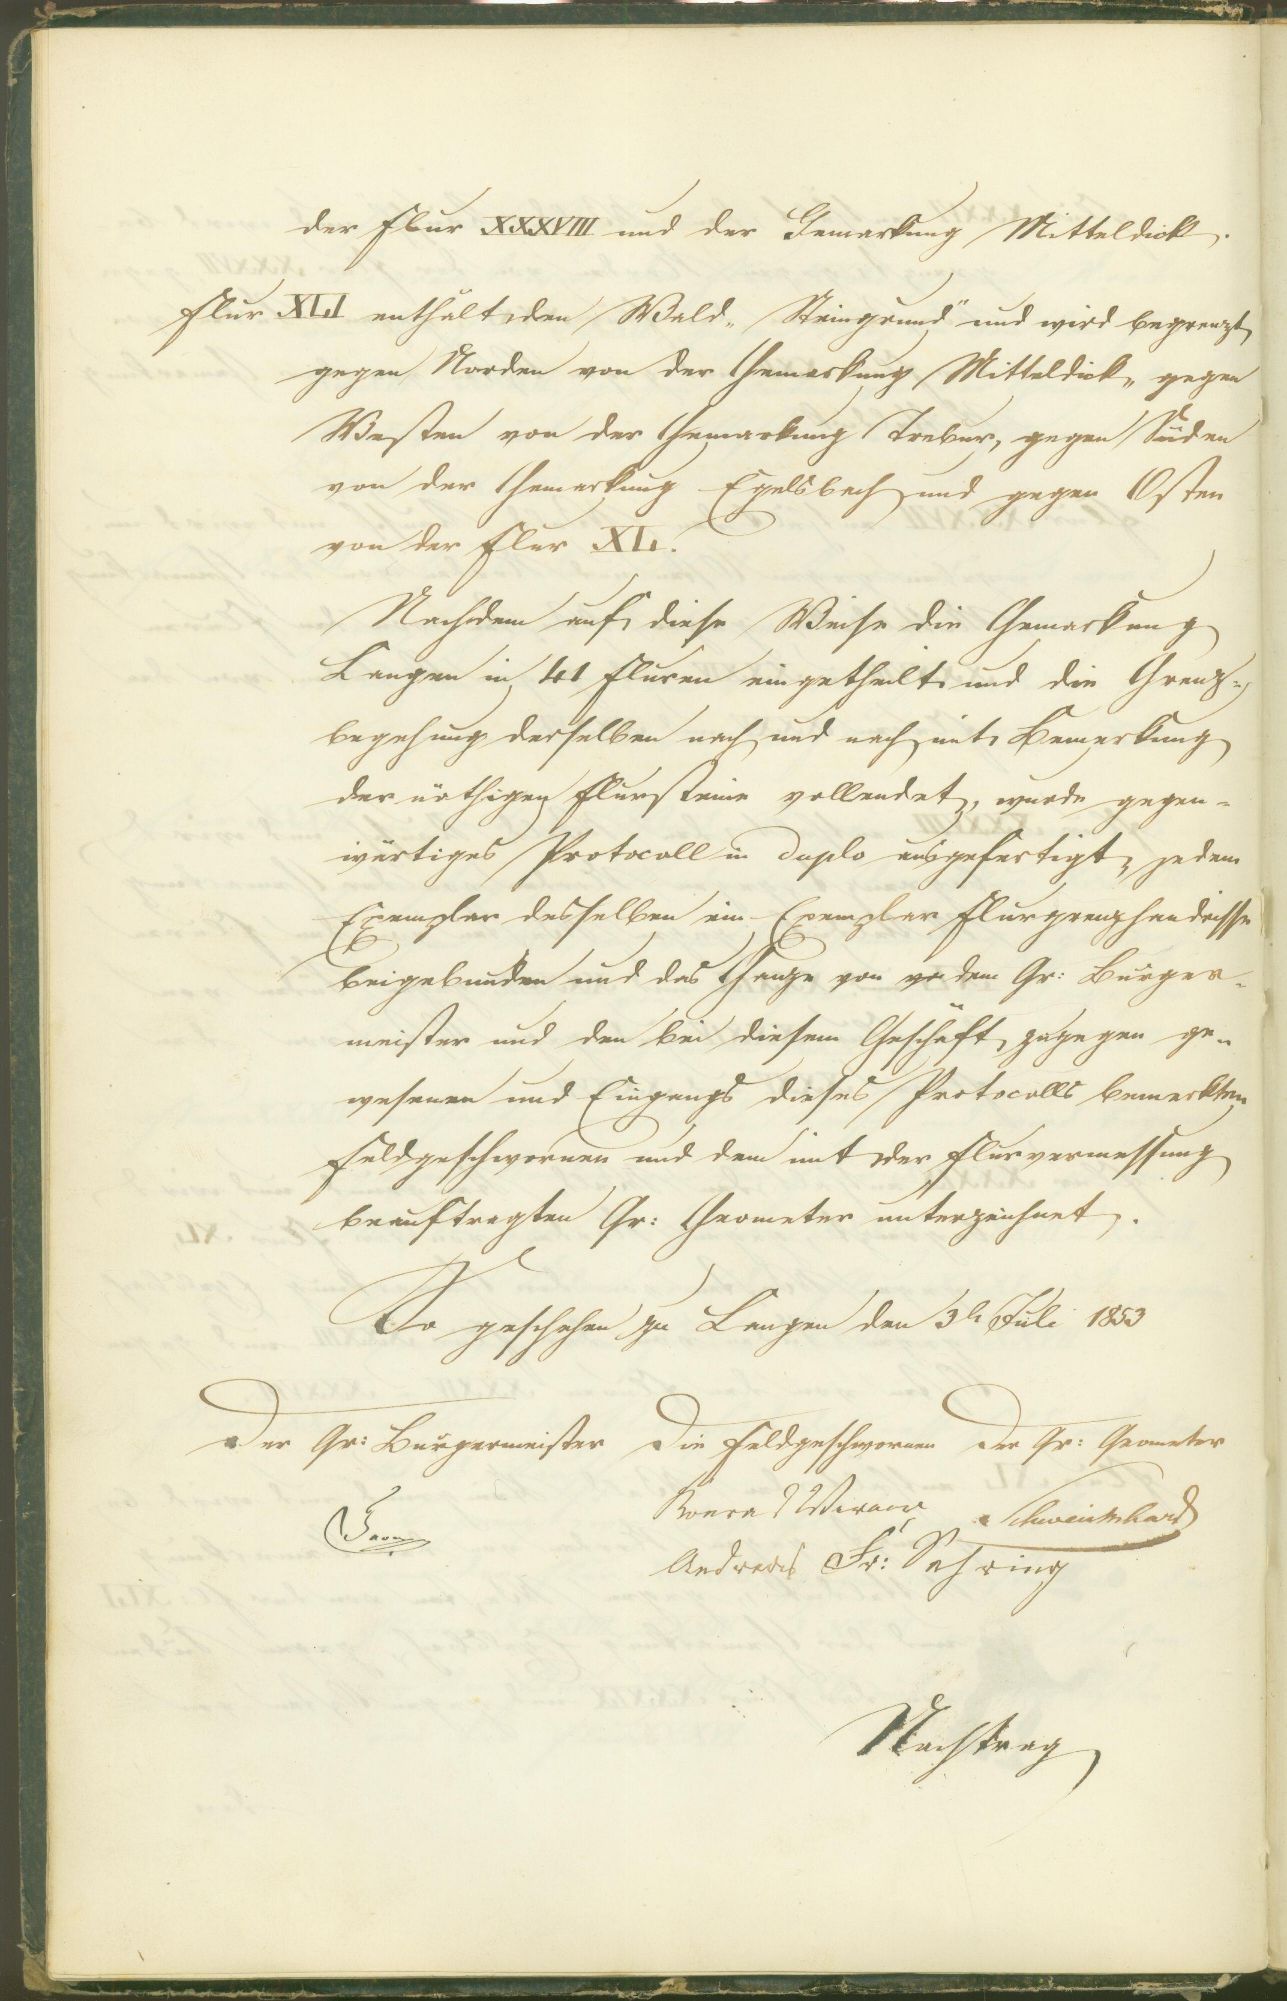 der Flur XXXVIII und der Gemarkung Mitteldick.
Flur XLI enthält den Wald „Steingrund" und wird begrenzt
gegen Norden von der Gemarkung Mitteldick, gegen
Westen von der Gemarkung Trebur, gegen Süden
von der Gemarkung Egelsbach und gegen Osten
von der Flur XL.
Nachdem auf diese Weise die Gemarkung
Langen in 41 Fluren eingetheilt und die Grenz-
begehung derselben nach und nach mit Bemerkung
der nöthigen Flursteine vollendet, wurde gegen-
wärtiges Protocoll in duplo ausgefertigt, jedem
Exemplar desselben ein Exemplar Flurgrenzhandrisse
beigebunden und das Ganze von dem Gr: Bürger-
meister und den bei diesem Geschäft zugegen ge-
wesenen und Eingangs dieses Protocolls bemerkten
Feldgeschwornen und dem mit der Flurvermessung
beauftragten Gr: Geometer unterzeichnet.
So geschehen zu Langen den Juli 1853
Der Gr: Bürgermeister Die Feldgeschwornen Der Gr: Geometer
Schweickhard
Andreas Fr: Sehring
Nachtrag